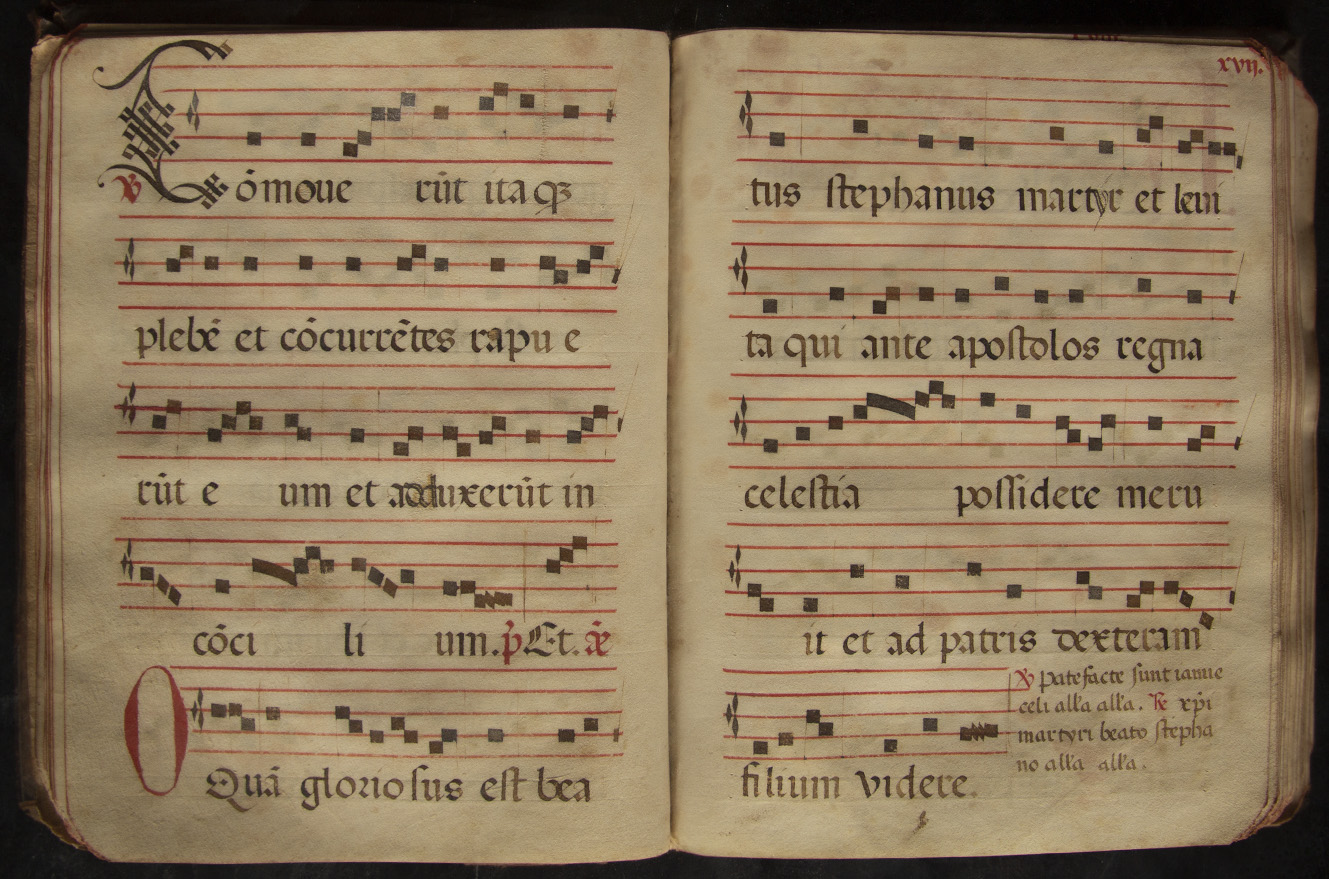 ℣ Cōmoue rūt itaqꝫ
plebē et cōcurrētes rapu e
rūt e um et adduxerūt in
cōci li um. p̄ Et. añ
O Quā gloriosus est bea
xvij.
tus stephanus martyr et leui
ta qui ante apostolos regna
celestia possidere meru
it et ad patris dexteram
℣ Patefacte sunt ianue
celi alľa alľa. ℟ xp̄i
martyri beato stepha
no alľa alľa.
filium videre.